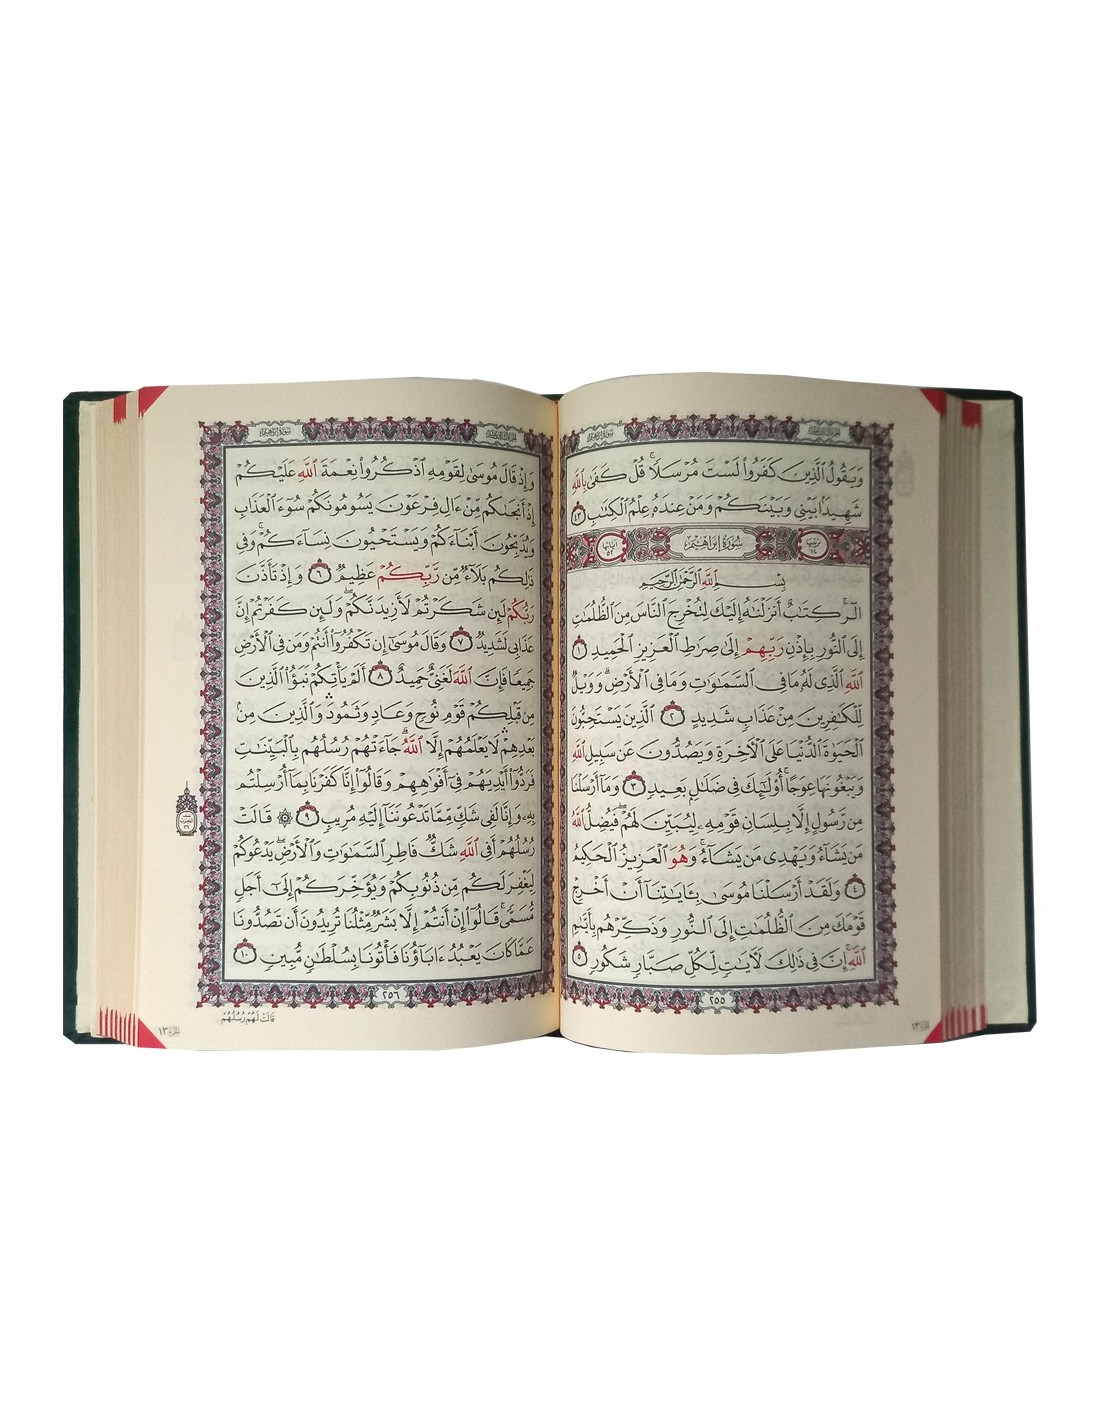 وَيَقُولُ ٱلَّذِينَ كَفَرُواْ لَسْتَ مُرْسَلًاۚ قُلْ كَفَىٰ بِٱللَّهِ
شَهِيدَۢا بَيْنِي وَبَيْنَكُمْ وَمَنْ عِندَهُۥ عِلْمُ ٱلْكِتَٰبِ ٤٣
ترتيبها ١٤ سُورَةُ إِبْرَاهِيمَ آياتها ٥٢
بِسْمِ ٱللَّهِ ٱلرَّحْمَٰنِ ٱلرَّحِيمِ
الٓرۚ كِتَٰبٌ أَنزَلْنَٰهُ إِلَيْكَ لِتُخْرِجَ ٱلنَّاسَ مِنَ ٱلظُّلُمَٰتِ
إِلَى ٱلنُّورِ بِإِذْنِ رَبِّهِمْ إِلَىٰ صِرَٰطِ ٱلْعَزِيزِ ٱلْحَمِيدِ ١
ٱللَّهِ ٱلَّذِي لَهُۥ مَا فِي ٱلسَّمَٰوَٰتِ وَمَا فِي ٱلْأَرْضِۗ وَوَيْلٌ
لِّلْكَٰفِرِينَ مِنْ عَذَابٍ شَدِيدٍ ٢ ٱلَّذِينَ يَسْتَحِبُّونَ
ٱلْحَيَوٰةَ ٱلدُّنْيَا عَلَى ٱلْأٓخِرَةِ وَيَصُدُّونَ عَن سَبِيلِ ٱللَّهِ
وَيَبْغُونَهَا عِوَجًاۚ أُوْلَٰٓئِكَ فِي ضَلَٰلِۭ بَعِيدٍ ٣ وَمَآ أَرْسَلْنَا
مِن رَّسُولٍ إِلَّا بِلِسَانِ قَوْمِهِۦ لِيُبَيِّنَ لَهُمْۖ فَيُضِلُّ ٱللَّهُ
مَن يَشَآءُ وَيَهْدِي مَن يَشَآءُۚ وَهُوَ ٱلْعَزِيزُ ٱلْحَكِيمُ
٤ وَلَقَدْ أَرْسَلْنَا مُوسَىٰ بِـَٔايَٰتِنَآ أَنْ أَخْرِجْ
قَوْمَكَ مِنَ ٱلظُّلُمَٰتِ إِلَى ٱلنُّورِ وَذَكِّرْهُم بِأَيَّىٰمِ
ٱللَّهِۚ إِنَّ فِي ذَٰلِكَ لَأٓيَٰتٍ لِّكُلِّ صَبَّارٍ شَكُورٍ ٥
٢٥٥
الجزء ١٣
وَإِذْ قَالَ مُوسَىٰ لِقَوْمِهِ ٱذْكُرُواْ نِعْمَةَ ٱللَّهِ عَلَيْكُمْ
إِذْ أَنجَىٰكُم مِّنْ ءَالِ فِرْعَوْنَ يَسُومُونَكُمْ سُوٓءَ ٱلْعَذَابِ
وَيُذَبِّحُونَ أَبْنَآءَكُمْ وَيَسْتَحْيُونَ نِسَآءَكُمْۚ وَفِي
ذَٰلِكُم بَلَآءٌ مِّن رَّبِّكُمْ عَظِيمٌ ٦ وَإِذْ تَأَذَّنَ
رَبُّكُمْ لَئِن شَكَرْتُمْ لَأَزِيدَنَّكُمْۖ وَلَئِن كَفَرْتُمْ إِنَّ
عَذَابِي لَشَدِيدٌ ٧ وَقَالَ مُوسَىٰٓ إِن تَكْفُرُوٓاْ أَنتُمْ وَمَن فِي ٱلْأَرْضِ
جَمِيعًا فَإِنَّ ٱللَّهَ لَغَنِيٌّ حَمِيدٌ ٨ أَلَمْ يَأْتِكُمْ نَبَؤُاْ ٱلَّذِينَ
مِن قَبْلِكُمْ قَوْمِ نُوحٍ وَعَادٍ وَثَمُودَۛ وَٱلَّذِينَ مِنۢ
بَعْدِهِمْۛ لَا يَعْلَمُهُمْ إِلَّا ٱللَّهُۚ جَآءَتْهُمْ رُسُلُهُم بِٱلْبَيِّنَٰتِ
فَرَدُّوٓاْ أَيْدِيَهُمْ فِيٓ أَفْوَٰهِهِمْ وَقَالُوٓاْ إِنَّا كَفَرْنَا بِمَآ أُرْسِلْتُم
بِهِۦ وَإِنَّا لَفِي شَكٍّ مِّمَّا تَدْعُونَنَآ إِلَيْهِ مُرِيبٍ ٩ ۞ قَالَتْ
رُسُلُهُمْ أَفِي ٱللَّهِ شَكٌّ فَاطِرِ ٱلسَّمَٰوَٰتِ وَٱلْأَرْضِۖ يَدْعُوكُمْ
لِيَغْفِرَ لَكُم مِّن ذُنُوبِكُمْ وَيُؤَخِّرَكُمْ إِلَىٰٓ أَجَلٍ
مُّسَمًّىۚ قَالُوٓاْ إِنْ أَنتُمْ إِلَّا بَشَرٌ مِّثْلُنَا تُرِيدُونَ أَن تَصُدُّونَا
عَمَّا كَانَ يَعْبُدُ ءَابَآؤُنَا فَأْتُونَا بِسُلْطَٰنٍ مُّبِينٍ ١٠
٢٥٦
قَالَتْ لَهُمْ رُسُلُهُمْ
الجزء ١٣